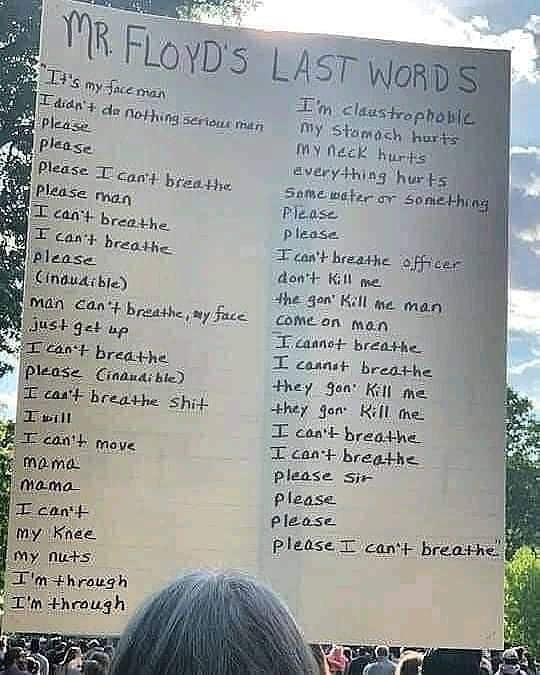 MR. FLOYD'S LAST WORDS
"It's my face man
I didn't do nothing serious man
please
please
please I can't breathe
please man
I can't breathe
I can't breathe
please
(inaudible)
man can't breathe, my face
just get up
I can't breathe
please (inaudible)
I can't breathe shit
I will
I can't move
mama
mama
I can't
my knee
my nuts
I'm through
I'm through
I'm claustrophobic
my stomach hurts
my neck hurts
everything hurts
some water or something
please
please
I can't breathe officer
don't kill me
the gon' kill me man
come on man
I cannot breathe
I cannot breathe
they gon' kill me
they gon' kill me
I can't breathe
I can't breathe
please sir
please
please
please I can't breathe"